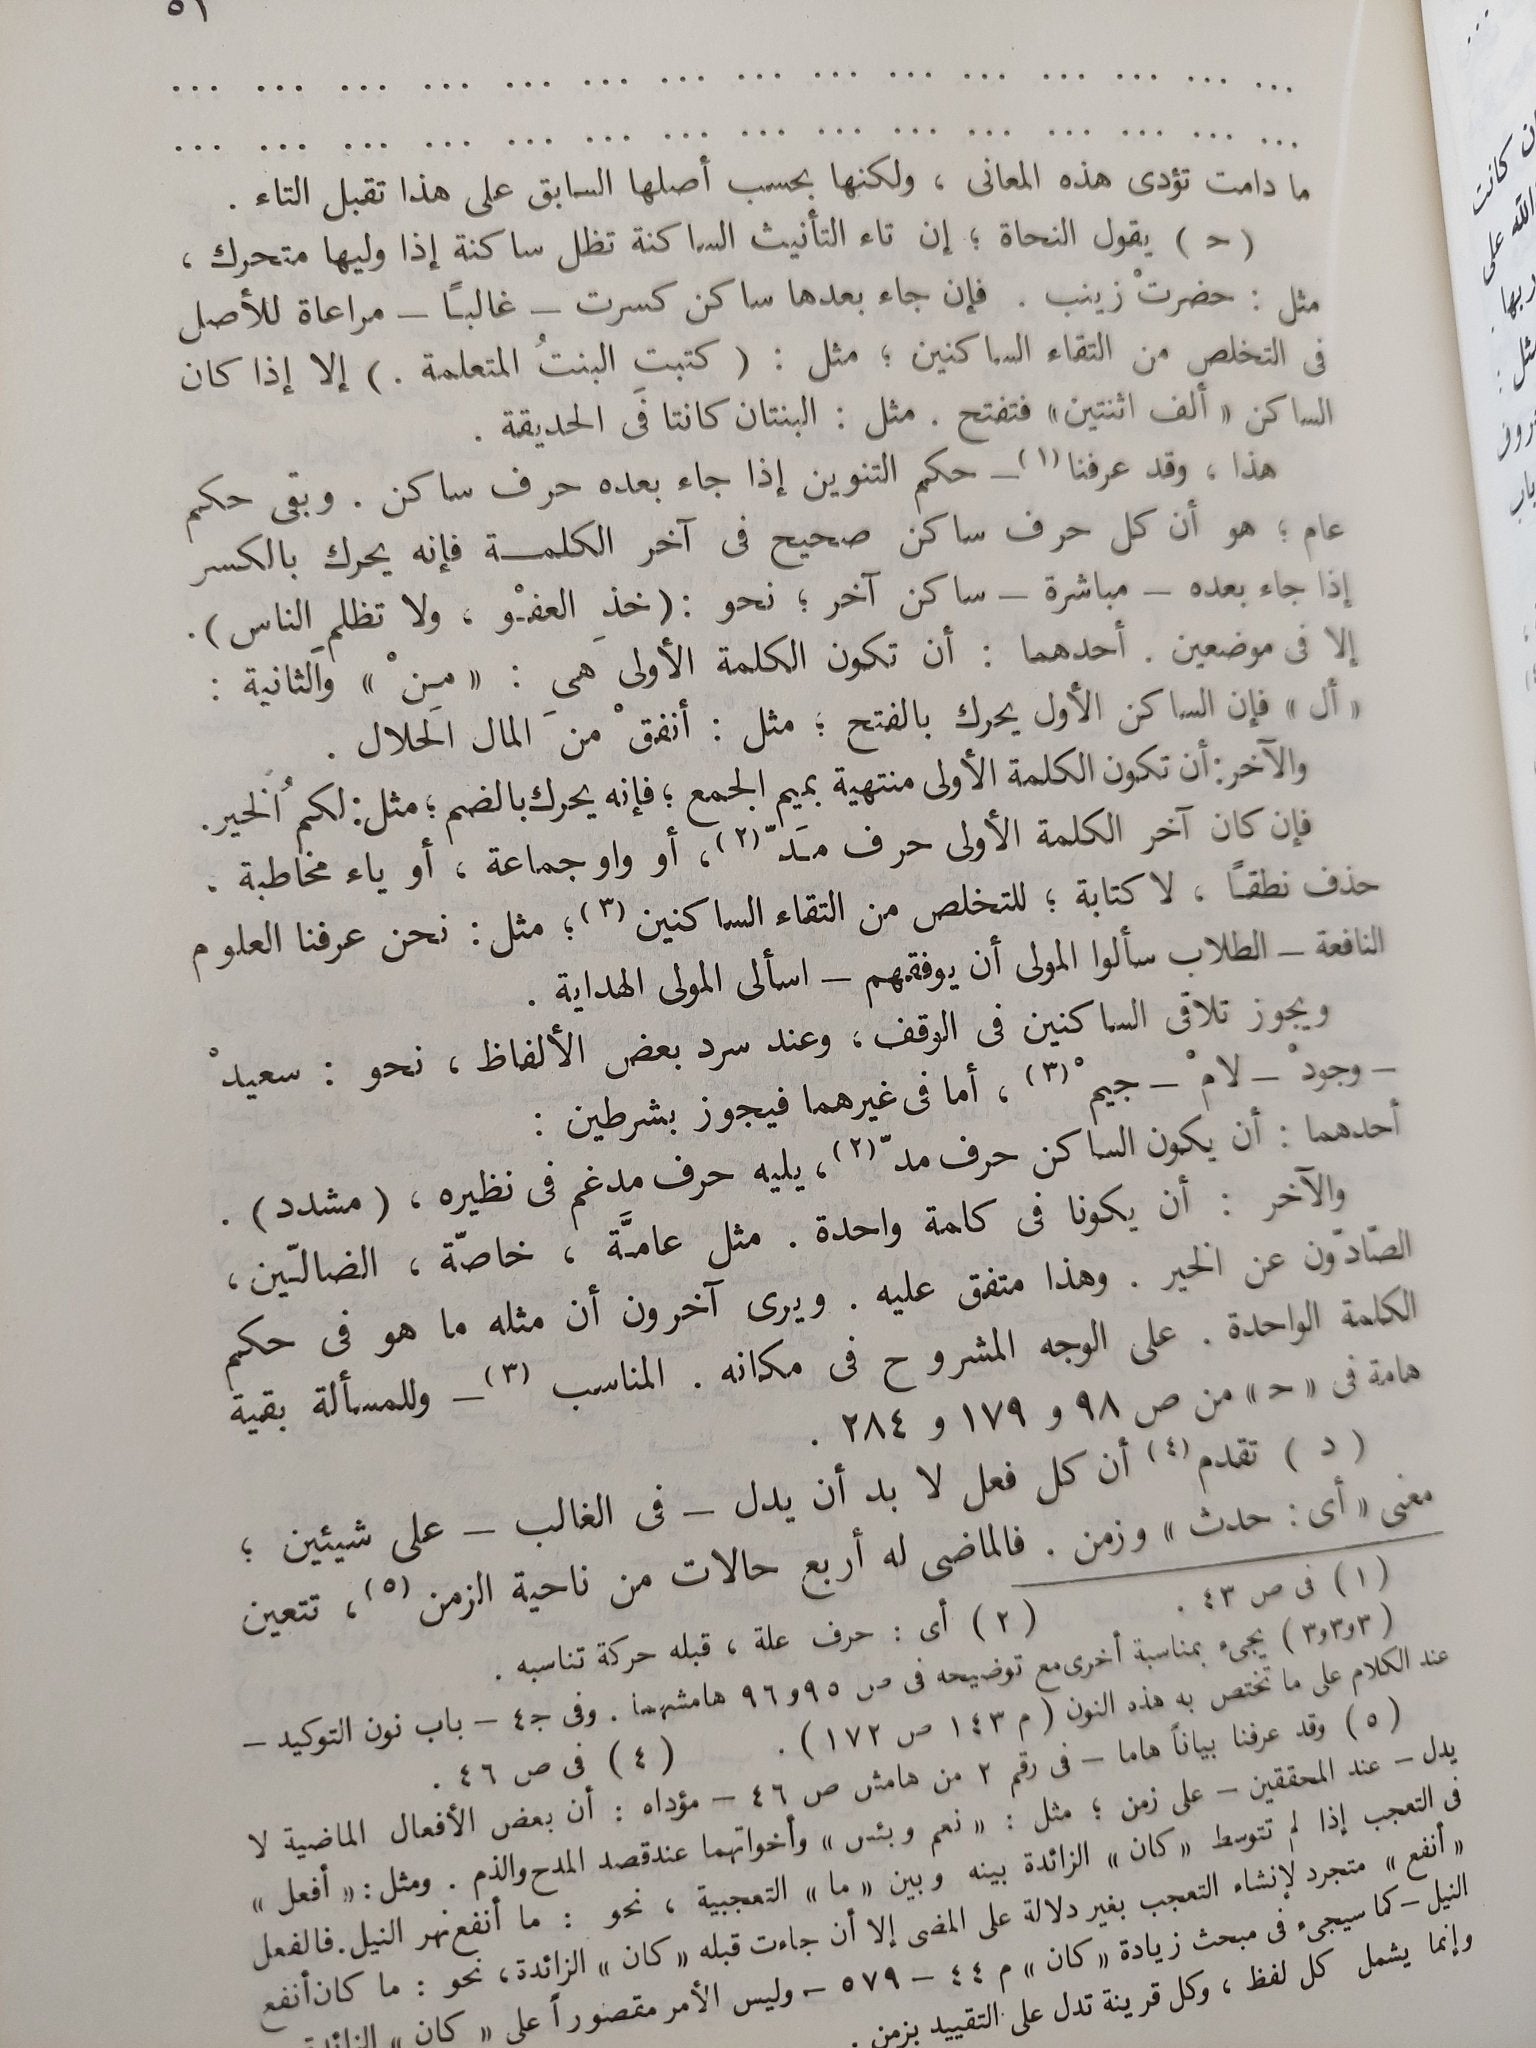 ٥١
... ... ... ... ... ... ... ... ... ... ... ... ... ... ...
... ... ... ... ... ... ... ... ... ... ... ... ... ... ...
ما دامت تؤدى هذه المعانى ، ولكنها بحسب أصلها السابق على هذا تقبل التاء .
( حـ ) يقول النحاة ؛ إن تاء التأنيث الساكنة تظل ساكنة إذا وليها متحرك ،
مثل : حضرتْ زينب . فإن جاء بعدها ساكن كسرت – غالبًا – مراعاة للأصل
فى التخلص من التقاء الساكنين ؛ مثل : ( كتبتِ البنتُ المتعلمة . ) إلا إذا كان
الساكن « ألف اثنتين» فتفتح . مثل : البنتان كانتَا فى الحديقة .
هذا ، وقد عرفنا (١) – حكم التنوين إذا جاء بعده حرف ساكن . وبقى حكم
عام ؛ هو أن كل حرف ساكن صحيح فى آخر الكلمــة فإنه يحرك بالكسر
إذا جاء بعده – مباشرة – ساكن آخر ؛ نحو : (خذِ العفْو ، ولا تظلمِ الناس) .
إلا فى موضعين . أحدهما : أن تكون الكلمة الأولى هى : « مِنْ » والثانية :
« أل » فإن الساكن الأول يحرك بالفتح ؛ مثل : أنفقْ منَ المال الحلال .
والآخر : أن تكون الكلمة الأولى منتهية بميم الجمع ؛ فإنه يحرك بالضم ؛ مثل : لكمُ الخير .
فإن كان آخر الكلمة الأولى حرف مَدّ (٢) ، أو واو جماعة ، أو ياء مخاطبة .
حذف نطقًا ، لا كتابة ؛ للتخلص من التقاء الساكنين (٣) ؛ مثل : نحن عرفنا العلوم
النافعة – الطلاب سألوا المولى أن يوفقهم – اسألى المولى الهداية .
ويجوز تلاقى الساكنين فى الوقف ، وعند سرد بعض الألفاظ ، نحو : سعيدْ
– وجودْ – لامْ – جيمْ (٣) ، أما فى غيرهما فيجوز بشرطين :
أحدهما : أن يكون الساكن حرف مدّ (٢) ، يليه حرف مدغم فى نظيره ، ( مشدد ) .
والآخر : أن يكونا فى كلمة واحدة . مثل عامَّة ، خاصّة ، الضالّين ،
الصّادّون عن الخير . وهذا متفق عليه . ويرى آخرون أن مثله ما هو فى حكم
الكلمة الواحدة . على الوجه المشروح فى مكانه . المناسب (٣) – وللمسألة بقية
هامة فى « حـ » من ص ٩٨ و ١٧٩ و ٢٨٤ .
( د ) تقدم (٤) أن كل فعل لا بد أن يدل – فى الغالب – على شيئين ؛
معنى « أى : حدث » وزمن . فالماضى له أربع حالات من ناحية الزمن (٥) ، تتعين
(١) فى ص ٤٣ . (٢) أى : حرف علة ، قبله حركة تناسبه .
(٣و٣و٣) يجىء بمناسبة أخرى مع توضيحه فى ص ٩٥ و ٩٦ هامشهما . وفى جـ٤ – باب نون التوكيد –
عند الكلام على ما تختص به هذه النون ( م ١٤٣ ص ١٧٢ ) . (٤) فى ص ٤٦ .
(٥) وقد عرفنا بياناً هاما – فى رقم ٢ من هامش ص ٤٦ – مؤداه : أن بعض الأفعال الماضية لا
يدل – عند المحققين – على زمن ؛ مثل : « نعم وبئس » وأخواتهما عند قصد المدح والذم . ومثل : « أفعل »
فى التعجب إذا لم تتوسط « كان » الزائدة بينه وبين « ما » التعجبية ، نحو : ما أنفع نهر النيل . فالفعل
« أنفع » متجرد لإنشاء التعجب بغير دلالة على المضى إلا أن جاءت قبله « كان » الزائدة ، نحو : ما كان أنفع
النيل – كما سيجىء فى مبحث زيادة « كان » م ٤٤ – ٥٧٩ – وليس الأمر مقصوراً على « كان » الزائدة
وإنما يشمل كل لفظ ، وكل قرينة تدل على التقييد بزمن .
كانت
الله على